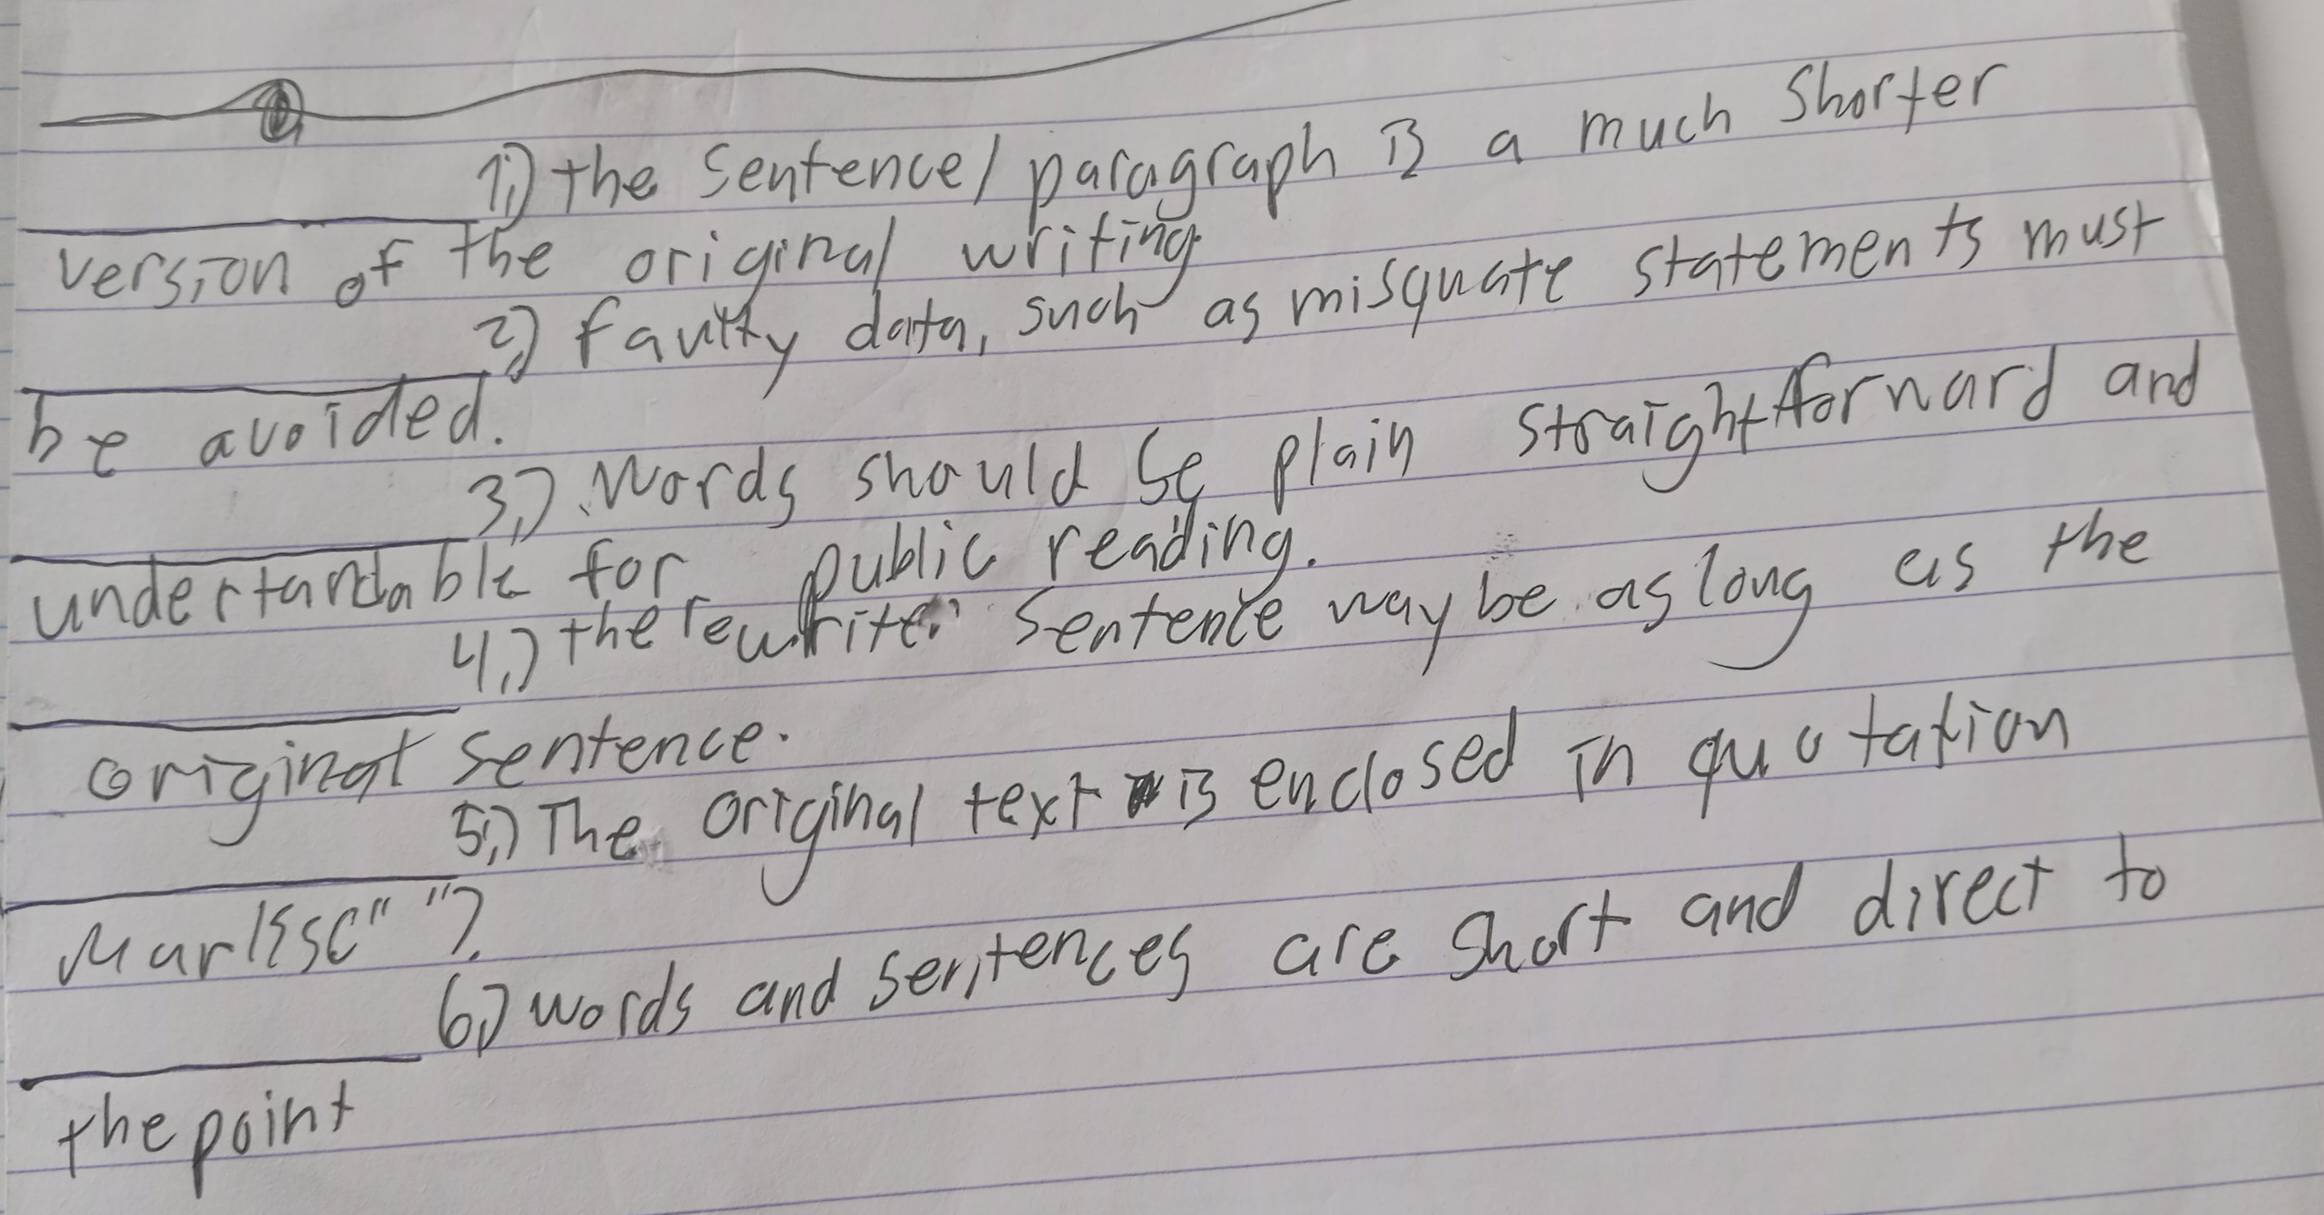 1.) the sentence/paragraph is a much shorter
version of the original writing.
2.) faulty data, such as misquate statements must
be avoided.
3.) words should be plain straightforward and
undertandable for public reading.
4.) the rewrite sentence may be as long as the
original sentence.
5.) The original text is enclosed in quotation
Marks(" ").
6.) words and sentences are short and direct to
the point